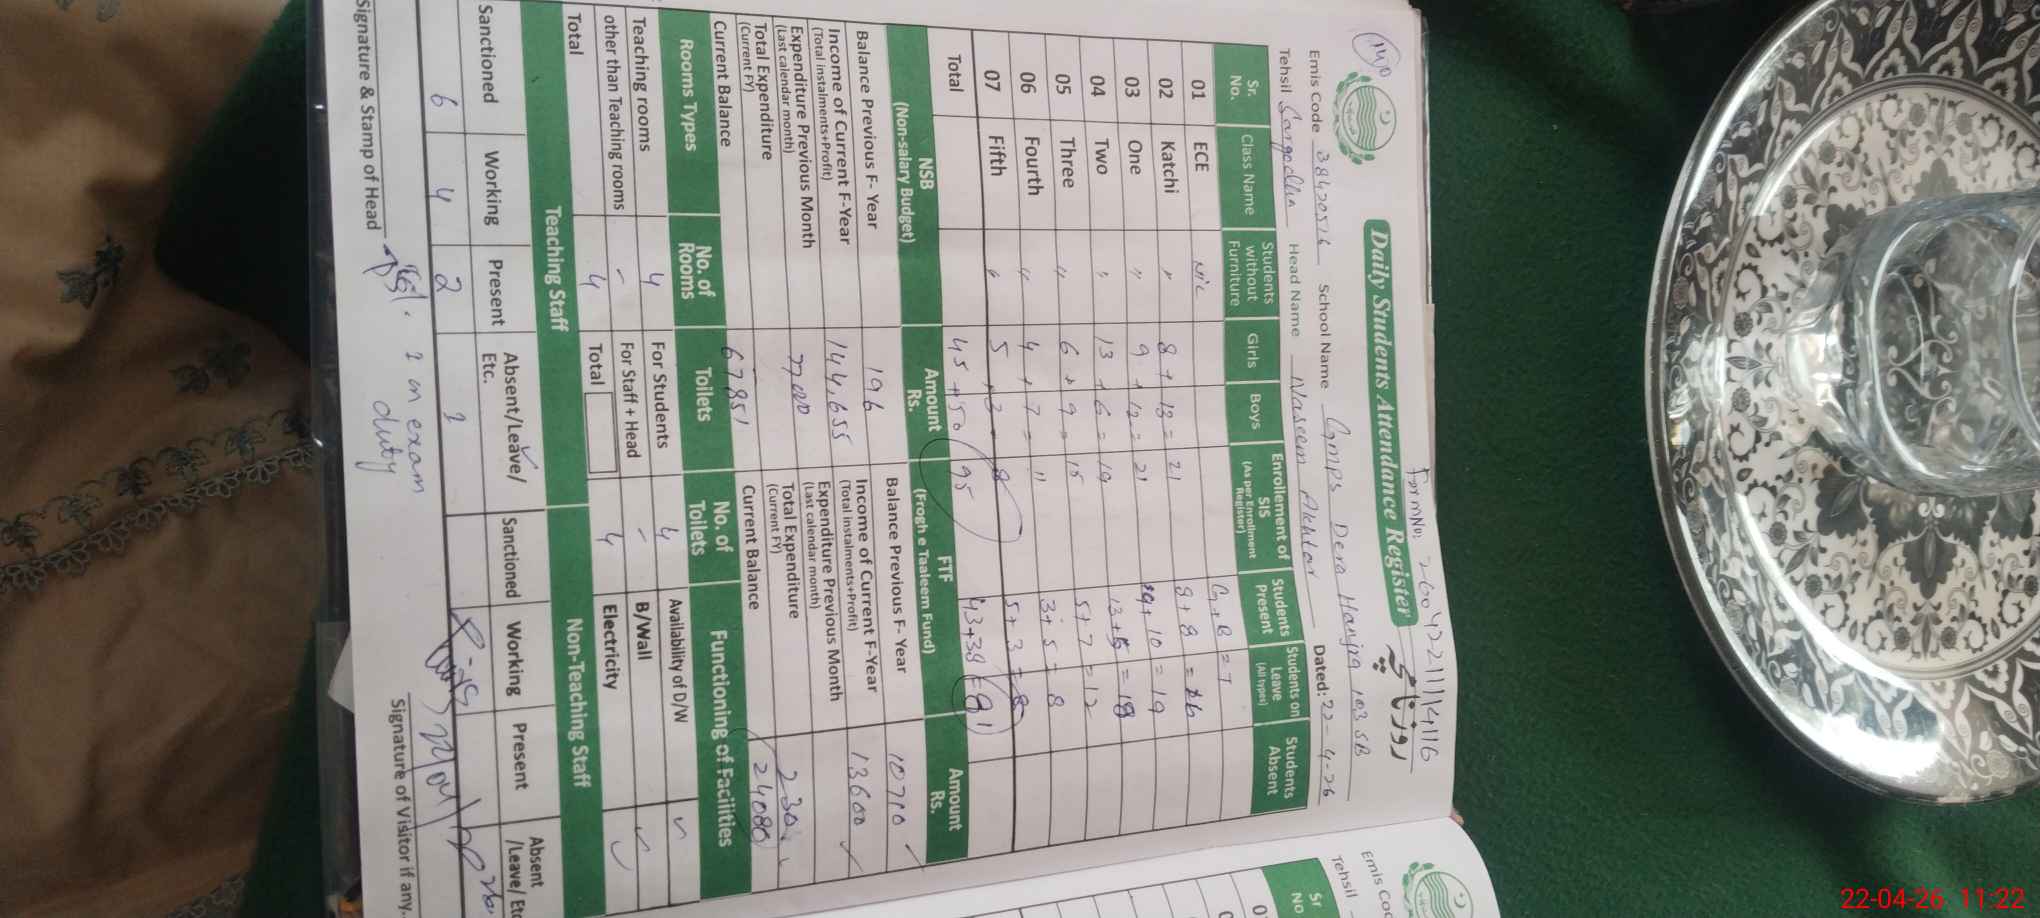 Form No: 26042211114116
Daily Students Attendance Register روزنامچہ
140
Emis Code 38420516 School Name Gmps Dera Hanjra 103 SB Dated: 22-4-26
Tehsil Sargodha Head Name Naseem Akhtar
Sr. No. Class Name Students without Furniture Girls Boys Enrollement of SIS (As per Enrollment Register) Students Present Students on Leave (All types) Students Absent
01 ECE Nil G+B=T
02 Katchi " 8 + 13 = 21 8+8 = 16
03 One " 9 + 12 = 21 9+10 = 19
04 Two " 13 + 6 = 19 13+5 = 18
05 Three " 6 + 9 = 15 5+7 = 12
06 Fourth " 4 + 7 = 11 3+5 = 8
07 Fifth " 5 + 3 = 8 5+3 = 8
Total 45 + 50 95 43+38 = 81
NSB (Non-salary Budget) Amount Rs. FTF (Frogh e Taaleem Fund) Amount Rs.
Balance Previous F- Year 196 Balance Previous F- Year 10710
Income of Current F-Year (Total instalments+Profit) 144,655 Income of Current F-Year (Total instalments+Profit) 13600
Expenditure Previous Month (Last calendar month) 77000 Expenditure Previous Month (Last calendar month)
Total Expenditure (Current FY) Total Expenditure (Current FY) 230
Current Balance 67851 Current Balance 24080
Rooms Types No. of Rooms Toilets No. of Toilets Functioning of Facilities
Teaching rooms 4 For Students 4 Availability of D/W ✓
other than Teaching rooms - For Staff + Head - B/Wall ✓
Total 4 Total 4 Electricity ✓
Teaching Staff Non-Teaching Staff
Sanctioned Working Present Absent/Leave/ Etc. Sanctioned Working Present Absent /Leave/ Etc
6 4 2 2
2 in exam duty
Signature & Stamp of Head Signature of Visitor if any.
Emis Coc
Tehsil
Sr No
22-04-26 11:22